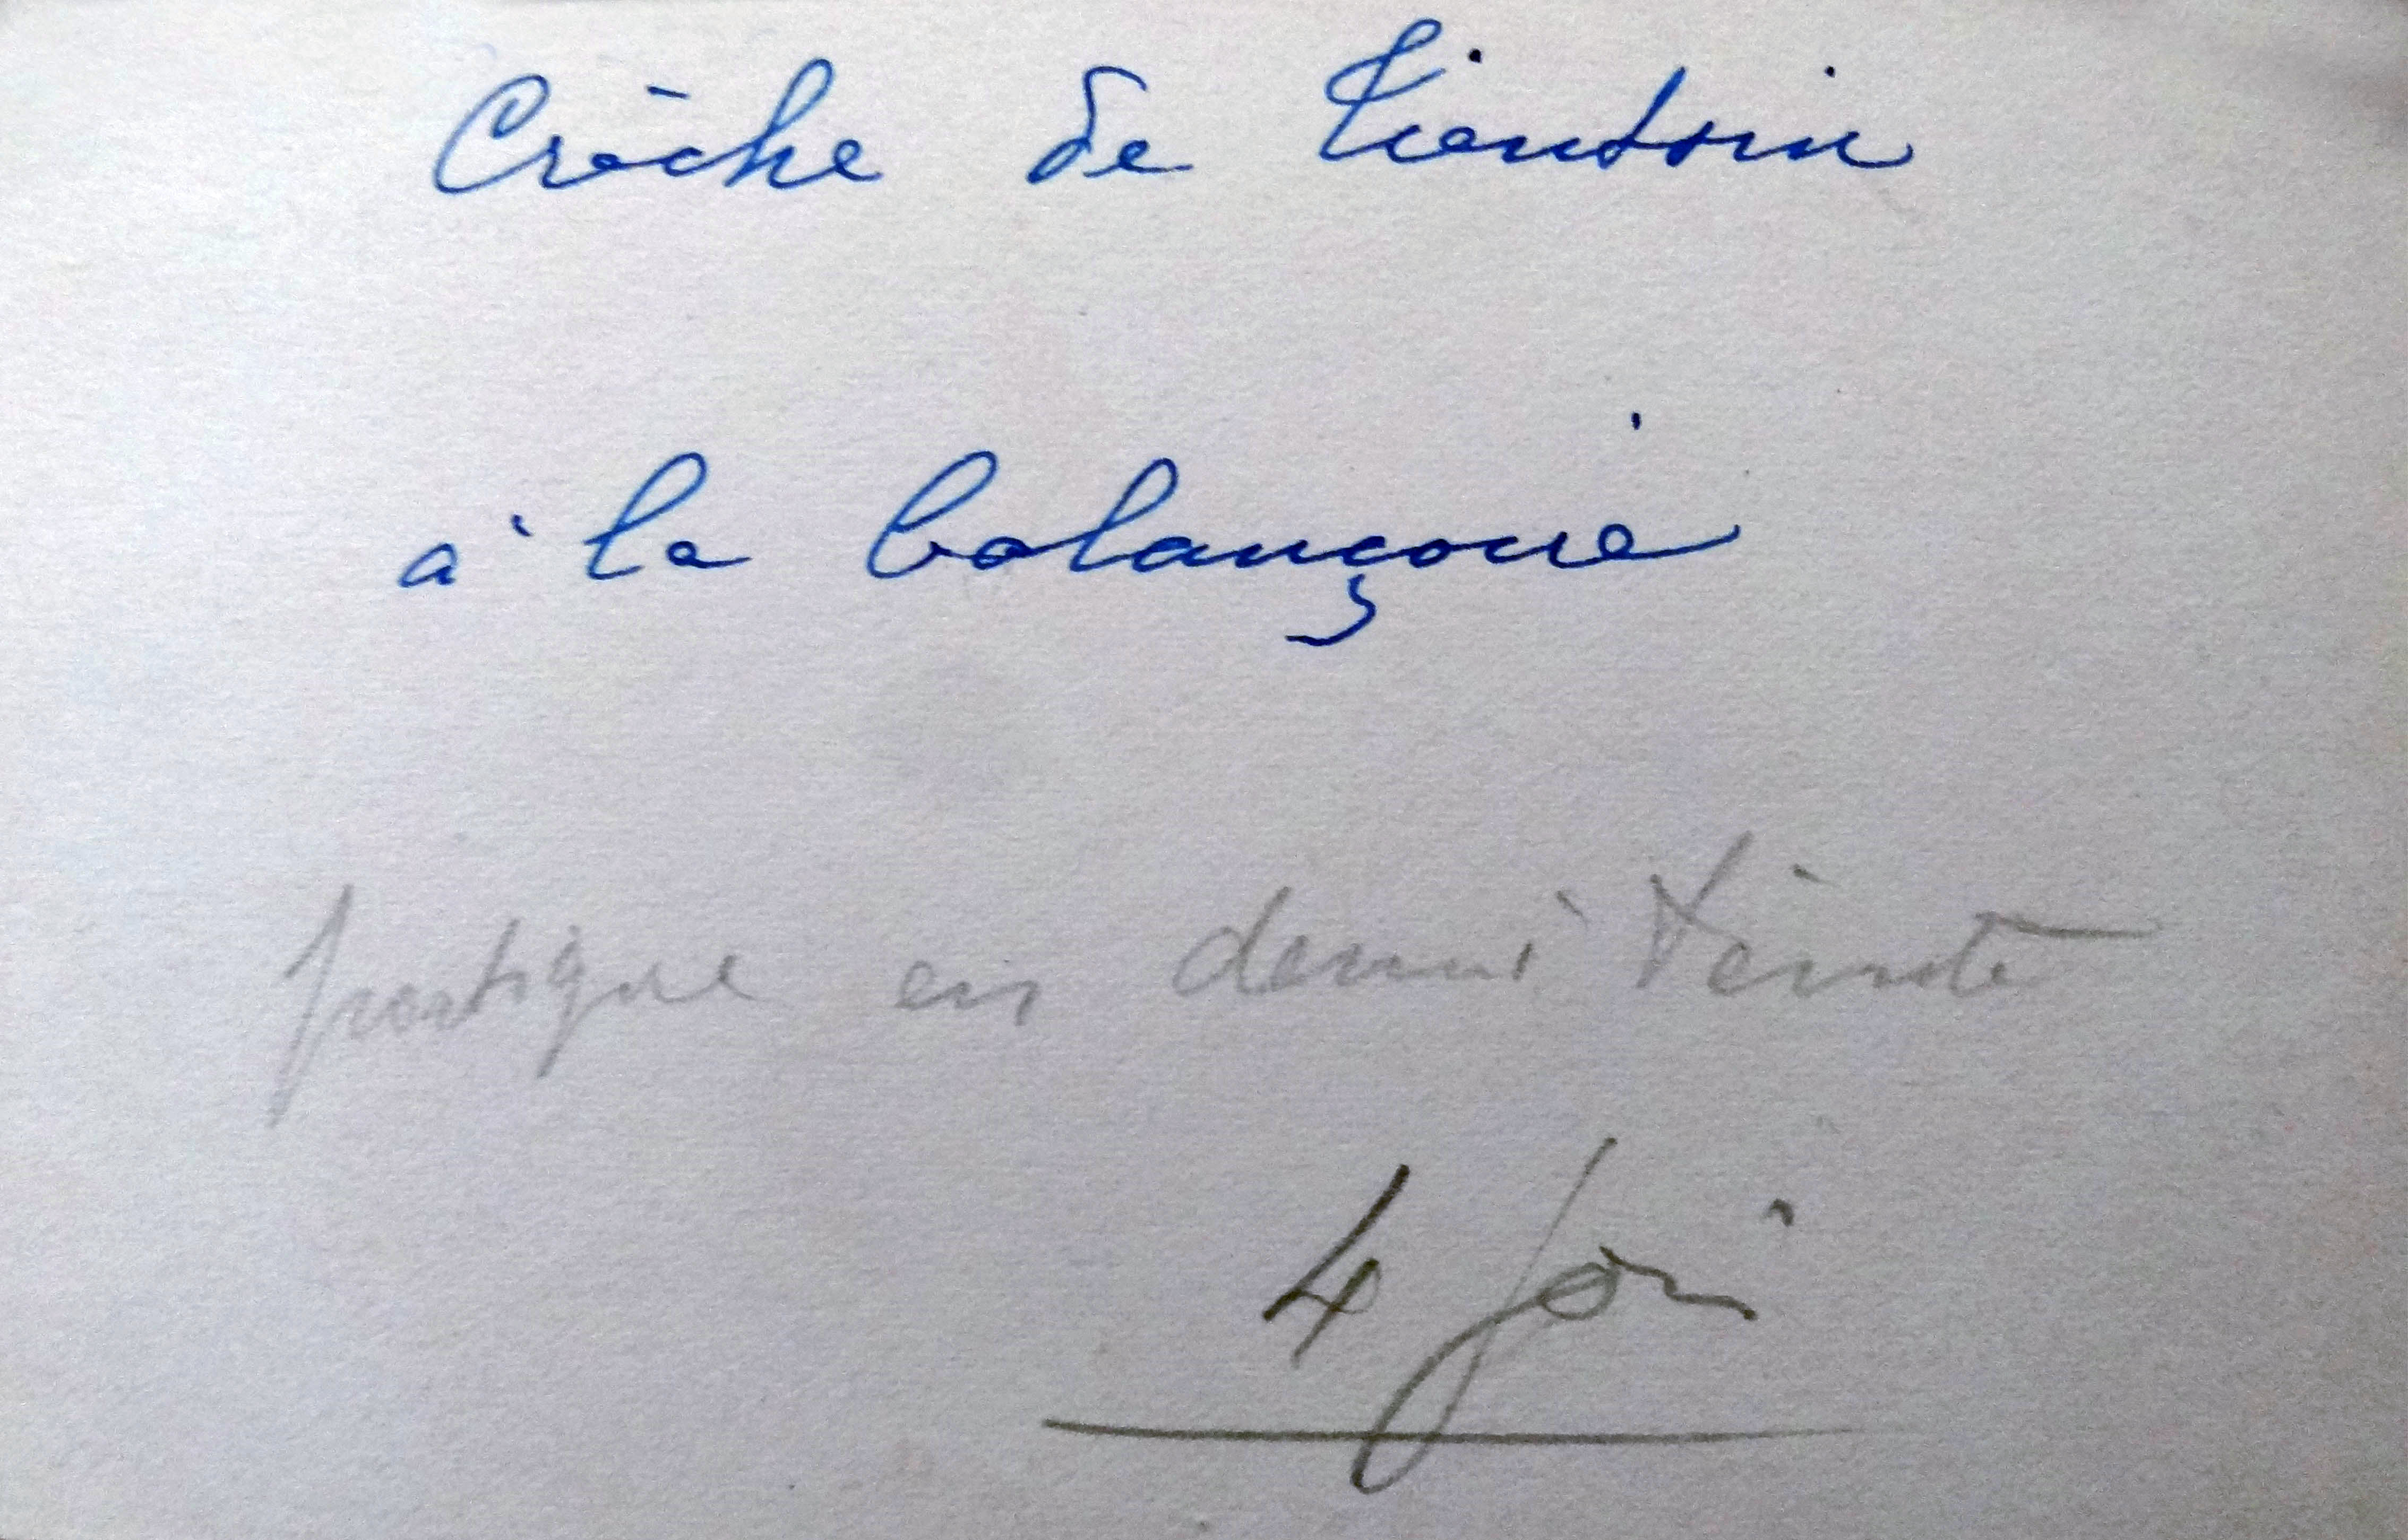 Crèche de Tientsin
à la balançoire
portique en demi teinte
4 foi